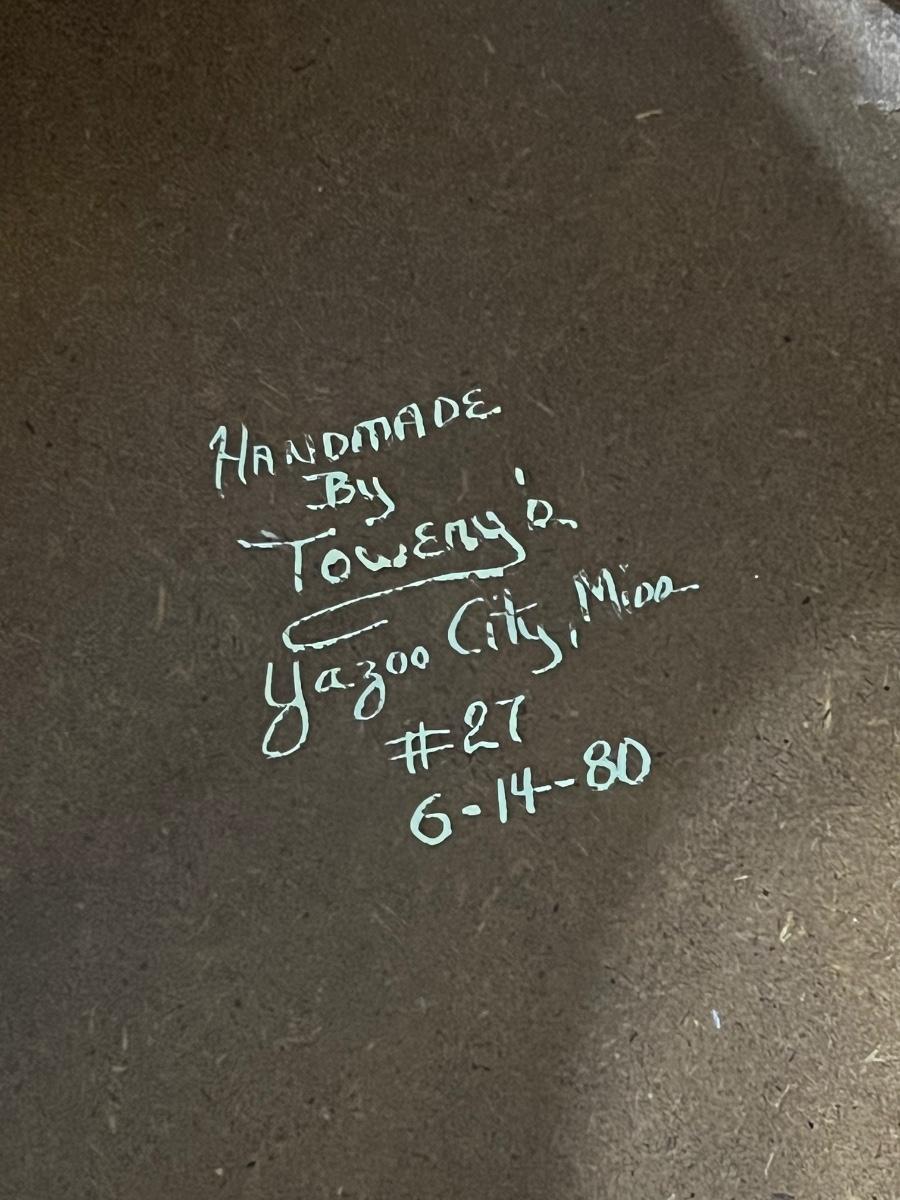 HANDMADE
By
Towery's
Yazoo City, Miss
#27
6-14-80